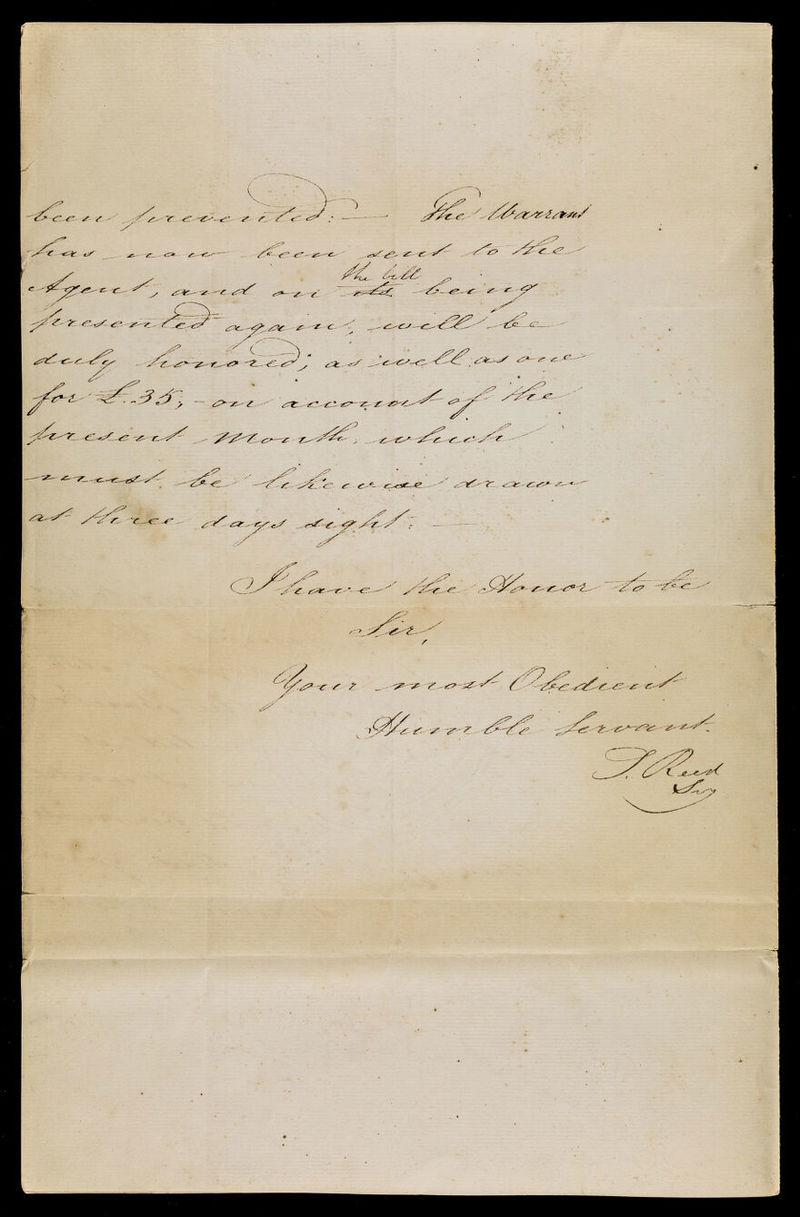 been prevented:— The Warrant
has now been sent to the
Agent, and on its the bill being
presented again, will be
duly honored; as well as one
for £.35,- on account of the
present Month, which
must be likewise drawn
at three days sight.—
I have the Honor to be
Sir,
Your most Obedient
Humble Servant.
Reed